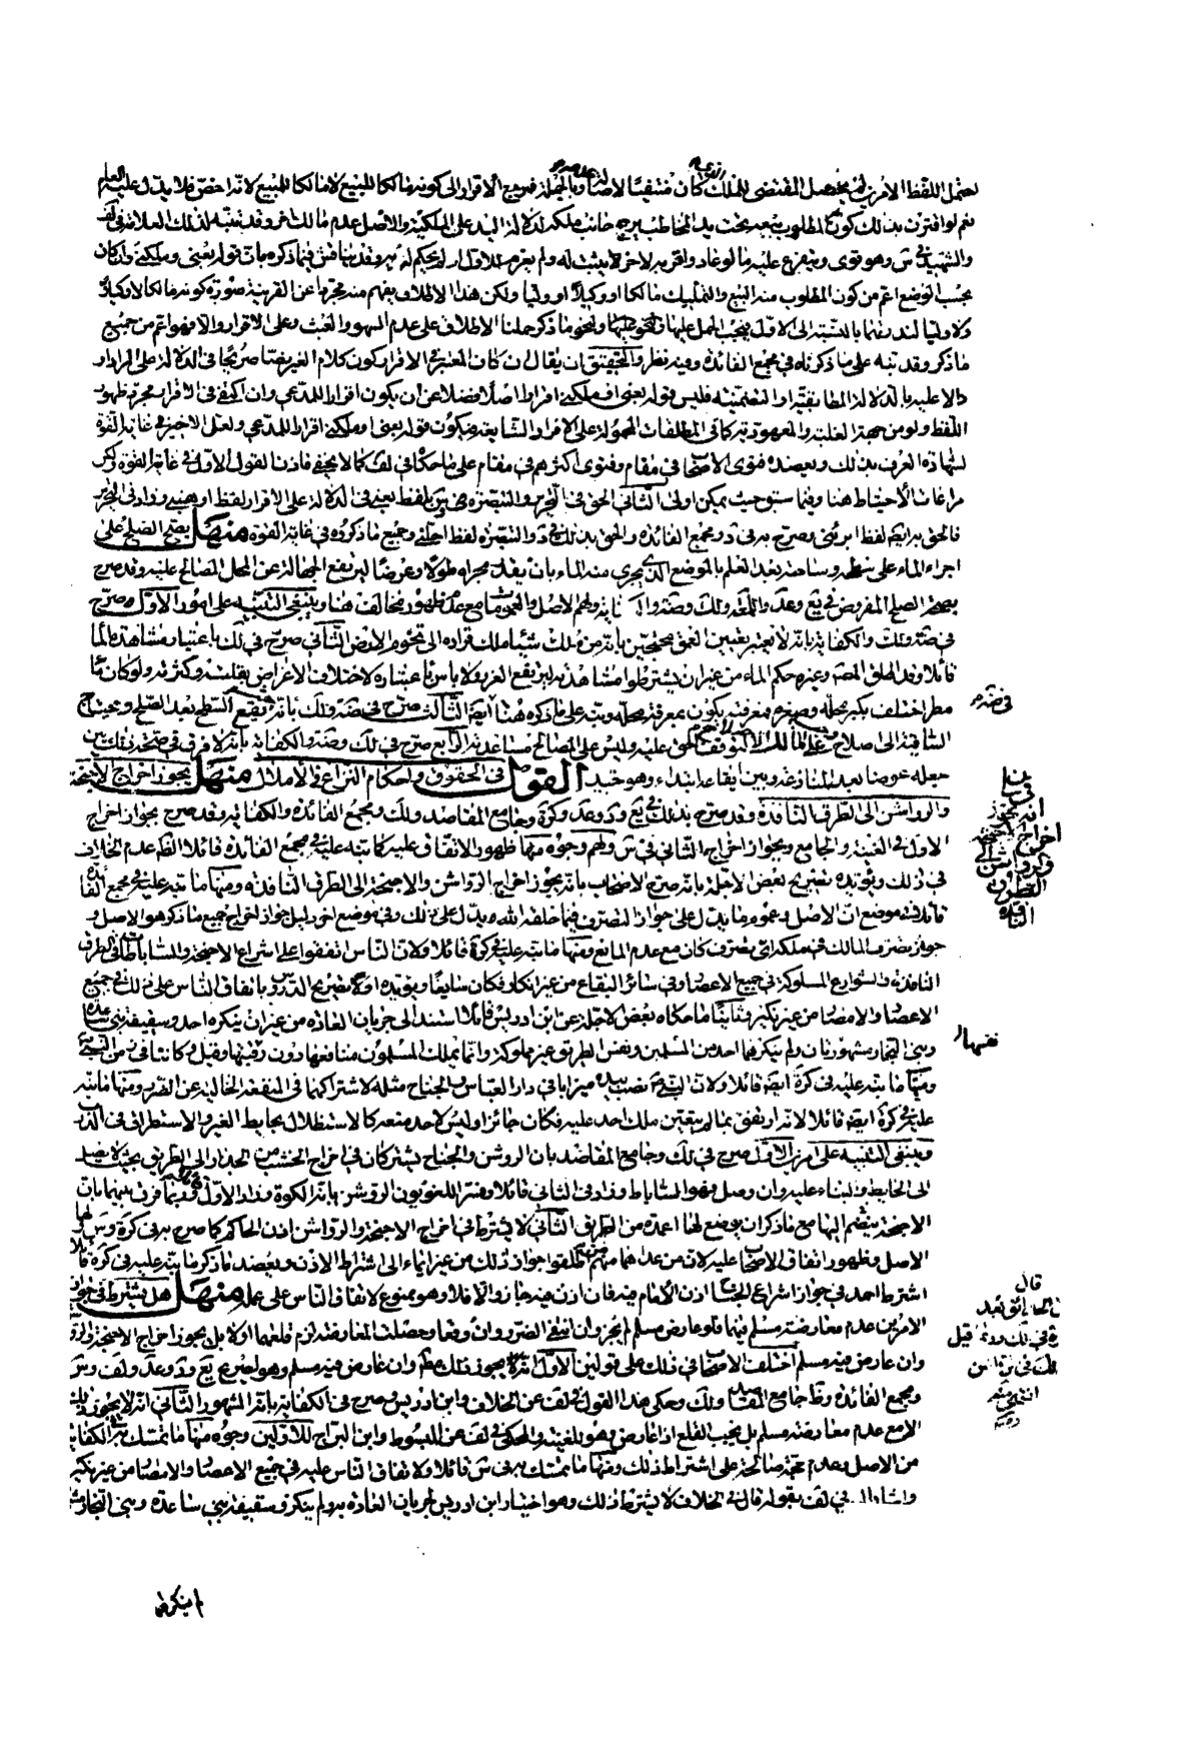 يحتمل اللفظ الأمرين لم يحصل المقتضى للملك كان منتفيا لأصالة وبالجملة فمرجع الاقرار الى كونه مالكا للمبيع لا مالكا للبيع لانه اخص فلا يدل عليه العام
نعم لو اقترن بذلك كون المطلوب بيعه تحت يد المخاطب يرجح جانب ملكه لدلالة اليد على الملكية والاصل عدم مالك اخر وقد نبه لذلك العلامة في لف
والشهيد في س وهو قوى ويتفرع عليه ما لو عاد واقر به لاخر لا يثبت له ولم يغرم للاول ان لم يحكم له به وقد يناقش فيما ذكره بان قوله بعنى وملكنى وان كان
بحسب الوضع اعم من كون المطلوب منه البيع والتمليك مالكا او وكيلا او وليا ولكن هذا الاطلاق يفهم منه مجردا عن القرينة صورة كونه مالكا لا وكيلا
ولا وليا لندرتهما بالنسبة الى الاول فيجب الحمل عليها
ما ذكر وقد نبه على ما ذكرناه في مجمع الفائدة وفيه نظر والتحقيق ان يقال ان كان المعتبر في الاقرار كون كلام المقر نصا صريحا في الدلالة على المراد او
دالا عليه بالدلالة المطابقية او التضمنية فليس قوله بعنى او ملكنى اقرارا اصلا فضلا عن ان يكون اقرارا للمدعى وان اكتفى في الاقرار مجرد ظهور
اللفظ ولو من جهة الغلبة والمعهودية كما في المطلقات المحمولة على الافراد الشايعة فيكون قوله بعنى او ملكنى اقرارا للمدعى ولعل الاخير في غاية القوة
لشهادة العرف بذلك ويعضده فتوى الاصحاب في مقام وفتوى اكثرهم في مقام على ما حكاه في لف كما لا يخفى فاذن القول الاول في غاية القوة ولكن
مراعات الاحتياط هنا وفيما سبق حيث يمكن اولى الثانى الحق في التحرير والتبصرة
فالحق به ايضا لفظ ابرئنى وصرح به في د ومجمع الفائدة والحق بذلك في د والتبصرة لفظ اجلنى وجميع ما ذكروه في غاية القوة منهل يصح الصلح على
اجراء الماء على سطحه وساحته بعد العلم بالموضع الذى يجرى منه الماء بان يقدر مجراه طولا وعرضا ليرتفع الجهالة عن المحل المصالح عليه وقد صرح
بصحة الصلح المفروض في يع وعد واللمعة ولك وضه والكفاية ولهم الاصل والعمومات مع عدم ظهور مخالف هنا وينبغى التنبيه على امور الاول صرح
في ضه ولك والكفاية بانه لا يعتبر تعيين العمق محتجين بان من ملك شيئا ملك قراره الى تخوم الارض الثانى صرح في لك باعتبار مشاهدة الماء
قائلا وقد اطلق المصنف وغيره حكم الماء من غير ان يشترطوا مشاهدته ليرتفع الغرر ولا باس باعتباره لاختلاف الاغراض بقلته وكثرته ولو كان ماء
مطر اختلف بكبر محله وصغره فمعرفته يكون بمعرفة محله ونبه على ما ذكره هنا ايضا الثالث صرح في ضه ولك بانه لو وقع السطح بعد الصلح او احتاج
الساقية الى اصلاح فعلى المالك لتوقف الحق عليه وليس على المصالح مساعدته الرابع صرح في لك وضه والكفاية بانه لا فرق في صحة ذلك بين
جعله عوضا بعد المنازعة وبين ايقاعه ابتداء وهو جيد القول في الحقوق واحكام النزاع في الأملاك منهل يجوز اخراج الاجنحة
والرواشن الى الطرق النافذة وقد صرح بذلك في يع ود وعد وكره وجامع المقاصد ولك ومجمع الفائدة والكفاية وقد صرح بجواز اخراج
الاول في الغنية والجامع وبجواز اخراج الثانى في س ولهم وجوه منها ظهور الاتفاق عليه كما نبه عليه في مجمع الفائدة قائلا الظاهر عدم الخلاف
في ذلك ويؤيده تصريح بعض الاجلة بانه صرح الاصحاب بانه يجوز اخراج الرواشن والاجنحة الى الطرق النافذة ومنها ما نبه عليه في مجمع الفائدة
قائلا في موضع ان الاصل وعموم ما يدل على جواز التصرف فيما خلقه الله ويدل على ذلك وفي موضع اخر دليل جواز اخراج جميع ما ذكر هو الاصل و
جواز تصرف المالك في ملكه اى تصرف كان مع عدم المانع ومنها ما نبه عليه في كره قائلا ولان الناس اتفقوا على اشراع الاجنحة والساباطات في الطرق
النافذة والشوارع المسلوكة في جميع الاعصار وفي سائر البقاع من غير انكار فكان سايغا ويؤيده اولا تصريح الدروس باتفاق الناس على ذلك في جميع
الاعصار والامصار من غير نكير وثانيا ما حكاه بعض الاجلة عن ابن ادريس قائلا استند الى جريان العادة من غير ان ينكره احد وسقيفة بنى ساعدة
وبنى النجار مشهورتان ولم ينكرهما احد من المسلمين ونفس الطريق غير مملوكة وانما يملك المسلمون منافعها دون رقبتها وقيل وكانتا في زمن النبى
ومنها ما نبه عليه في كره ايضا قائلا ولان النبى نصب بيده ميزابا في دار العباس والجناح مثله لاشتراكهما في المنفعة الخالية عن الضرر ومنها ما نبه
عليه في كره ايضا قائلا لانه ارتفق بما لم يتعين ملك احد عليه فكان جائزا وليس لاحد منعه كالاستظلال بحايط الغير والاستطراق في الدرب
وينبغى التنبيه على امرين الاول صرح في لك وجامع المقاصد بان الروشن والجناح يشتركان في اخراج الخشب من الجدار الى الطريق بحيث لا يصل
الى الحايط والبناء عليه وان وصل فهو الساباط وزاد في الثانى قائلا وفسر اللغويون الروشن بانه الكوة وزاد الاول وربما فرق بينهما بان
الاجنحة ينضم اليها مع ما ذكر ان يوضع لها اعمدة من الطريق الثانى لا يشترط في اخراج الاجنحة والرواشن اذن الحاكم كما صرح به في كره وس لها
الاصل وظهور اتفاق الاصحاب عليه لان من عداهما منهم اطلقوا جواز ذلك من غير ايماء الى اشتراط الاذن ويعضد ما ذكر ما نبه عليه في كره قائلا
اشترط احمد في جواز اشراع الجناح اذن الامام فيه فان اذن فيه جاز والا فلا وهو ممنوع لاتفاق الناس على عمله منهل هل يشترط في جواز
الامرين عدم معارضة مسلم فيها فلو عارض مسلم لم يجز وان انتفى الضرر وان وقعا وحصلت المعارضة لزم قلعهما اولا بل يجوز اخراج الاجنحة والرواشن
وان عارض فيه مسلم اختلف الاصحاب في ذلك على قولين الاول انه يجوز ذلك مطلقا وان عارض فيه مسلم وهو لصريح يع ود وعد ولف وس
ومجمع الفائدة وظاهر جامع المقاصد ولك وحكى هذا القول في لف عن الخلاف وابن ادريس وصرح في الكفاية بانه المشهور الثانى انه لا يجوز ذلك
الا مع عدم معارضة مسلم بل يجب القلع اذا عارض وهو للغنية والمحكى في لف عن المبسوط وابن البراج للاولين وجوه منها ما تمسك به في الكفاية
من الاصل وعدم حجة صالحة على اشتراط ذلك ومنها ما تمسك به في س قائلا ولاتفاق الناس عليه في جميع الاعصار والامصار من غير نكير
واشار اليه في لف بقوله قال في الخلاف لا يشترط ذلك وهو اختيار ابن ادريس لجريان العادة به ولم ينكر وسقيفة بنى ساعدة وبنى النجار
لم ينكرهما